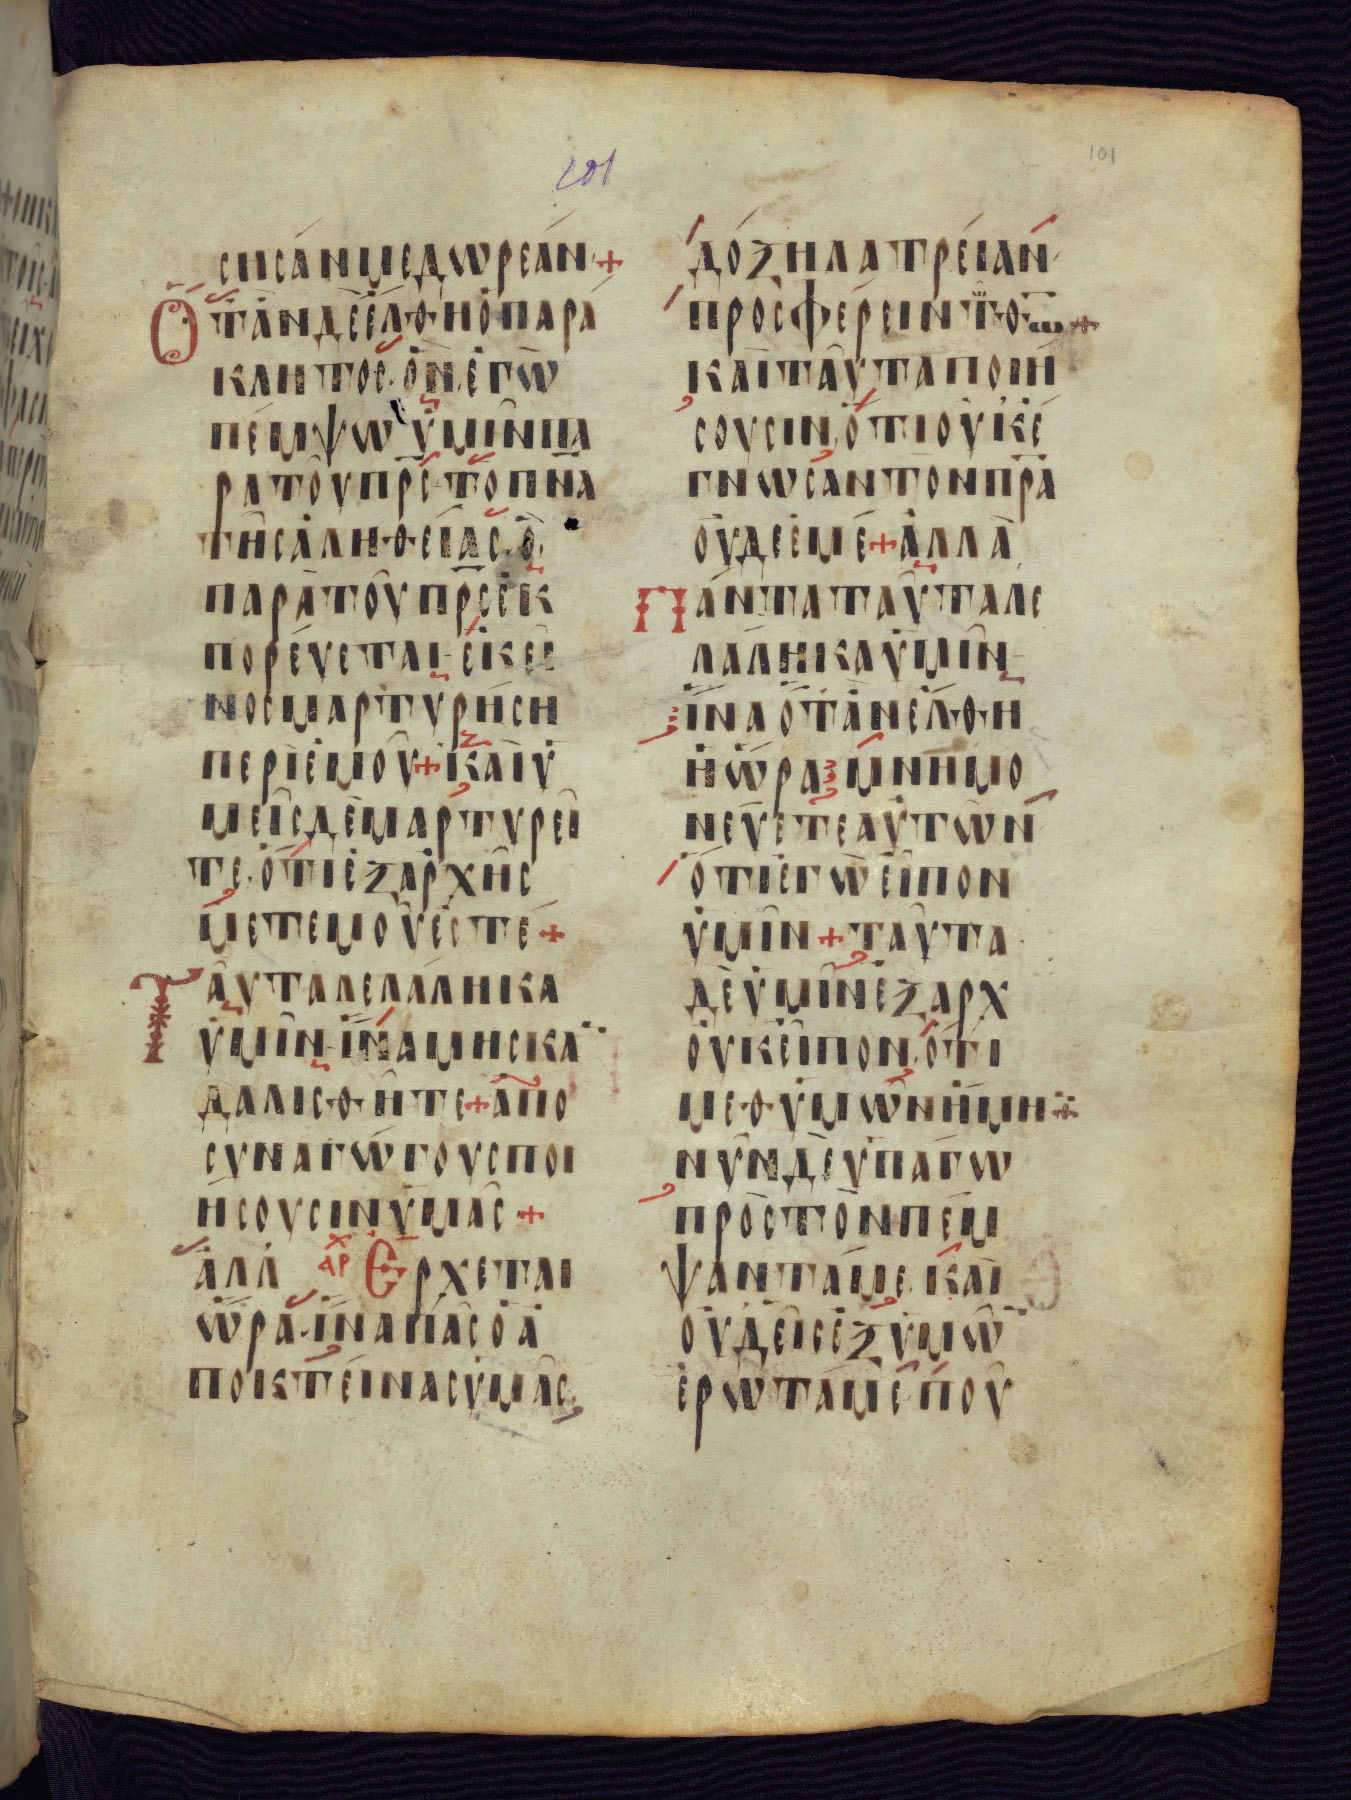 101
101
σησάν με δωρεάν +
Ὅταν δὲ ἔλθη ὁ παρά
κλητος· ὃν ἐγὼ
πέμψω ὑμῖν πα
ρα τοῦ πρ̅ς· τὸ πν̅α
τῆς ἀληθείας· ὃ
παρὰ τοῦ πρ̅ς ἐκ
πορέυεται· ἐκεῖ
νος μαρτυρήση
περὶ ἐμοῦ + καὶ ὑ
μεῖς δὲ μαρτυρεῖ
τε· ὅτι ἐξ ἀρχῆς
μετ ἐμοῦ ἐστέ +
Ταῦτα λελάληκα
ὑμῖν· ἵνα μὴ σκα̈
δαλισθῆτε + ἀπο
συναγώγους ποι
ήσουσιν ὑμᾶς +
ἀλλ ΑΡΧ Ερχεται
ὥρα· ἵνα πᾶς ὁ ἀ
ποκτείνας ὑμᾶς·
δόξη λατρείαν
προσφέρειν τῶ θω +
καὶ ταῦτα ποιή
σουσιν, ὅτι οὐκ ἔ
γνωσαν τὸν πρ̅α
οὐδε ἐμέ + ἀλλὰ
Πάντα ταῦτα λε
λάληκα ὑμῖν·
ἵνα ὅταν ἔλθη
ἡ ὥρα μνημο
νεύετε αὐτῶν
ὅτι ἐγὼ εἶπον
ὑμῖν + ταῦτα
δὲ ὑμῖν ἐξ αρχ
οὐκ εἶπον, ὅτι
μεθ ὑμῶν ἤμην +
νῦν δὲ ὑπάγω
πρὸς τὸν πέμ
ψαντά με· καὶ
οὐδεὶς ἐξ ὑμῶ̈
ἐρωτᾶ με· ποῦ